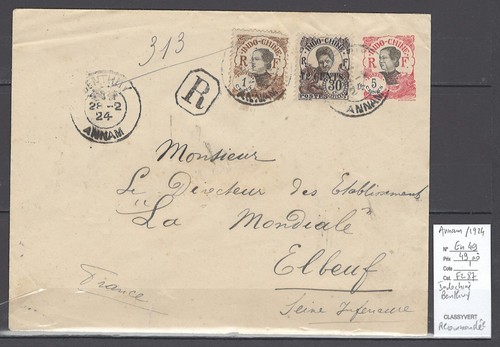 313
R
28-2
24
ANNAM
INDO-CHINE
R F
1
ANNAM
INDO-CHINE
R F
12 CENTS 30
INDO-CHINE
R F
5
ANNAM
Monsieur
Le Directeur des Etablissements
"La Mondiale"
Elbeuf
Seine Inférieure
France
Annam / 1924
N° En 49
Prix 49,00
Cote
Cat FL87
Indochine
Benthuy
CLASSYVERT
Recommandé